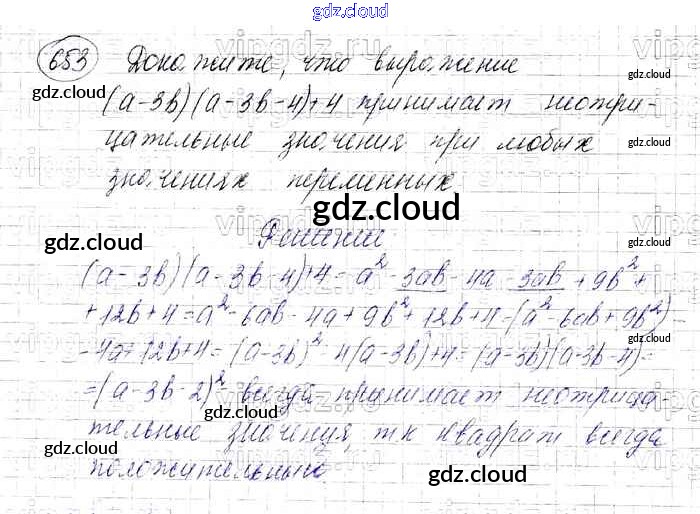 gdz.cloud
653 Докажите, что выражение
(a-3b)(a-3b-4)+4 принимает неотри-
цательные значения при любых
значениях переменных
gdz.cloud
Решение
(a-3b)(a-3b-4)+4 = a² - 3ab - 4a - 3ab + 9b² +
+ 12b + 4 = a² - 6ab - 4a + 9b² + 12b + 4 - (a² - 6ab + 9b²) -
- 4a + 12b + 4 = (a-3b)² - 4(a-3b) + 4 = (a-3b)(a-3b-4) =
= (a-3b-2)² всегда принимает неотрица-
тельные значения, т.к квадрат всегда
положительный.
gdz.cloud